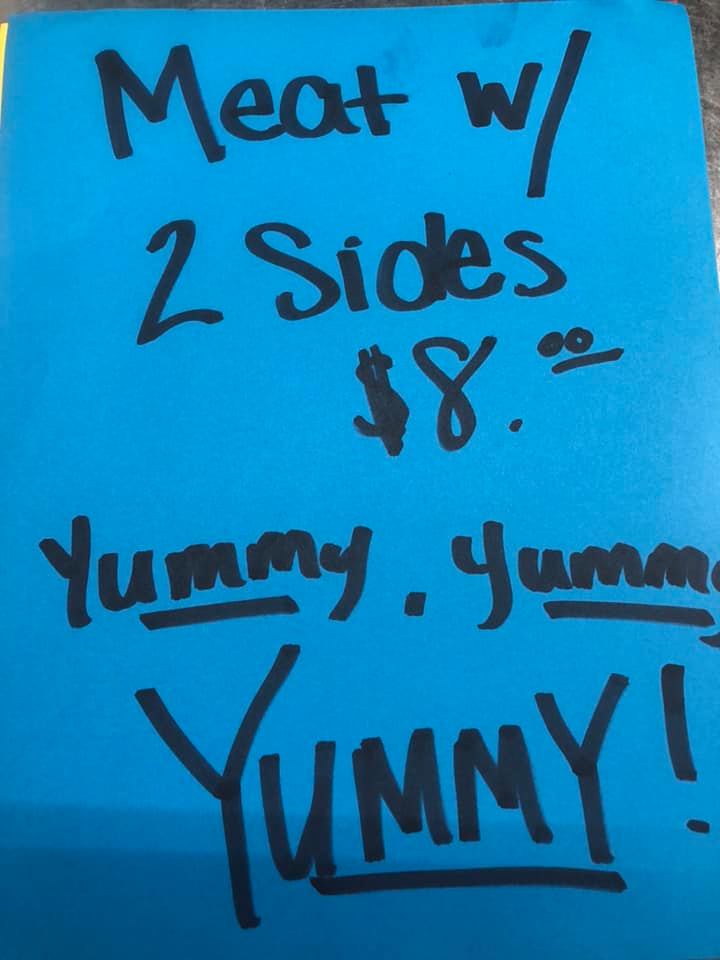 Meat w/
2 Sides
$8.00
Yummy. Yummy
YUMMY!